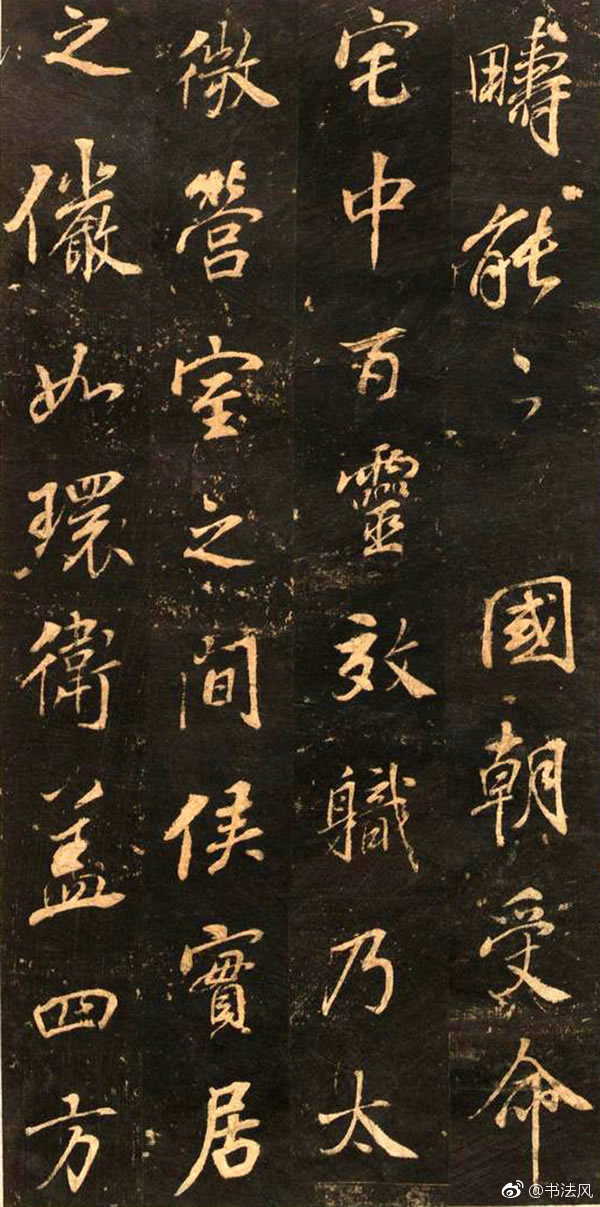 疇能之 國朝受命
宅中百靈效軄乃太
微營室之間侯實居
之儼如環衛盖四方
@书法风